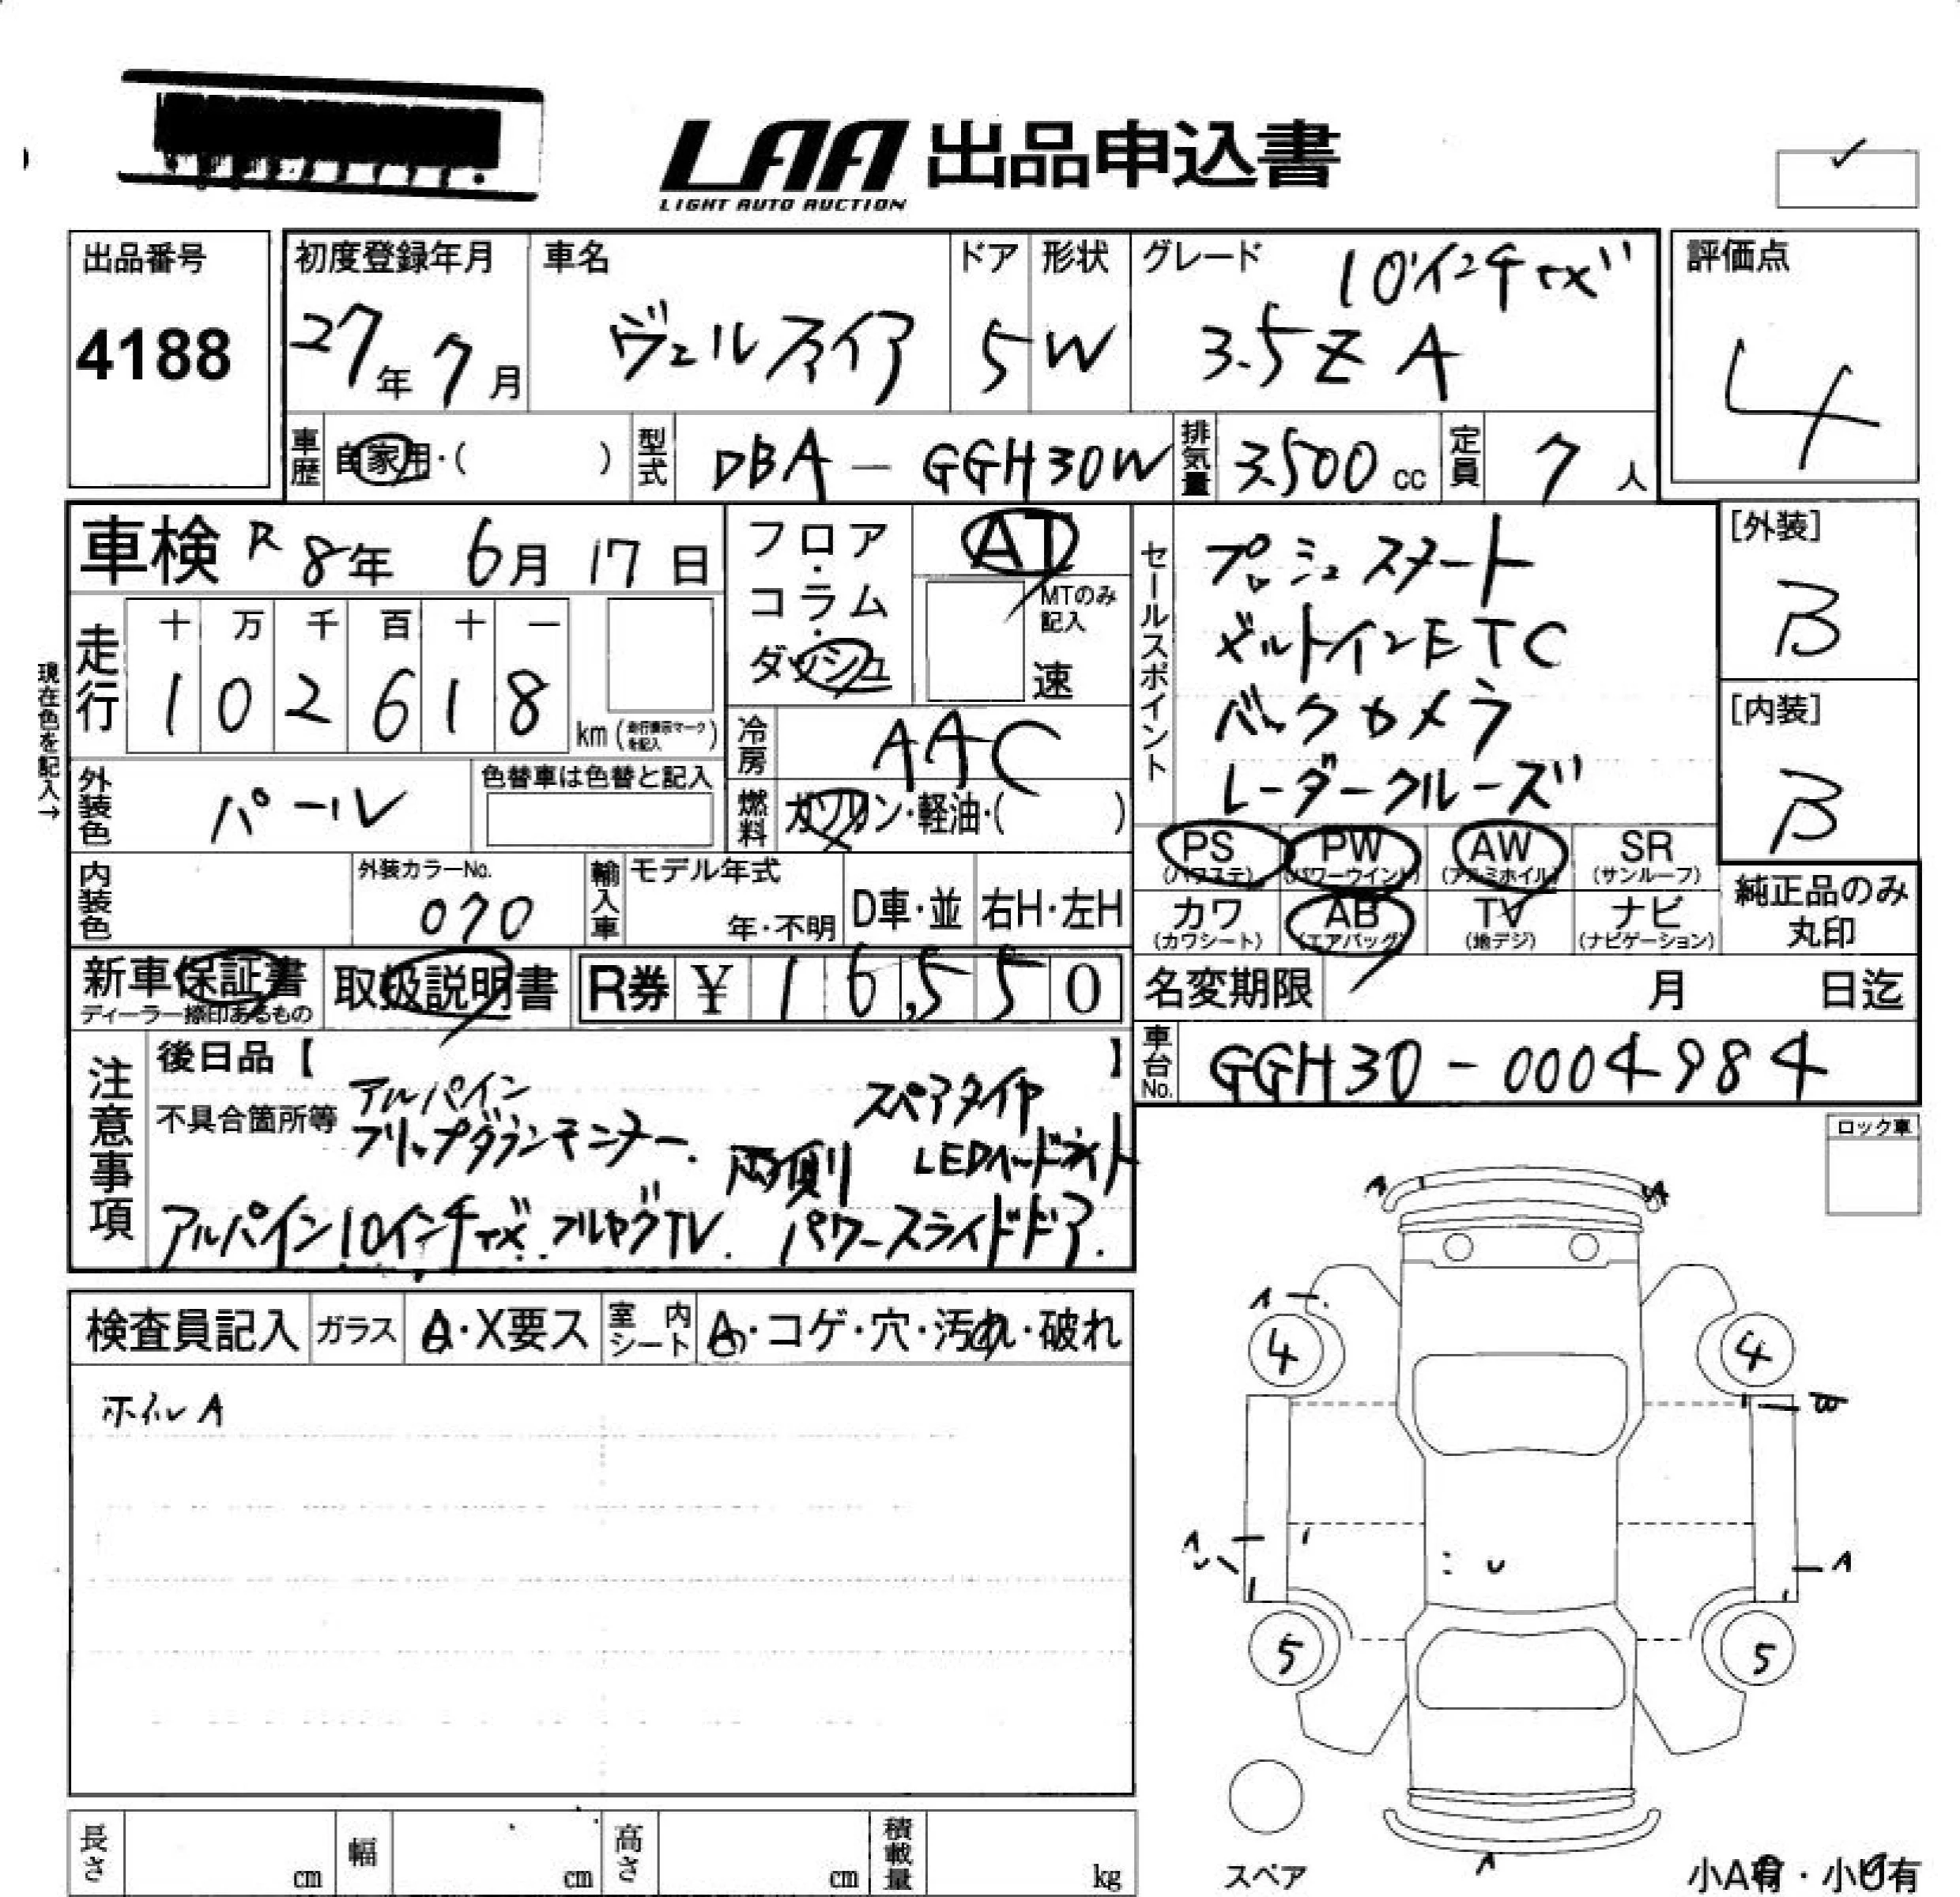 LAA 出品申込書
LIGHT AUTO AUCTION
出品番号
4188
初度登録年月
27年 7月
車名
ヴェルファイア
ドア
5
形状
W
グレード
10インチナビ
3.5Z A
評価点
4
車歴 自家用・( )
型式 DBA-GGH30W
排気量 3500 cc
定員 7人
車検 R8年 6月 17日
フロア・コラム・ダッシュ
AT
MTのみ記入
速
セールスポイント
プッシュスタート
ビルトインETC
バックカメラ
レーダークルーズ
[外装]
B
[内装]
B
現在色を記入→
走行
十 万 千 百 十 一
1 0 2 6 1 8
km(走行表示マークを記入)
冷房 AAC
外装色 パール
色替車は色替と記入
燃料 ガソリン・軽油・( )
PS (パワステ)
PW (パワーウインド)
AW (アルミホイル)
SR (サンルーフ)
カワ (カワシート)
AB (エアバッグ)
TV (地デジ)
ナビ (ナビゲーション)
純正品のみ丸印
内装色
外装カラーNo.
070
輸入車
モデル年式
年・不明
D車・並
右H・左H
新車保証書
ディーラー捺印あるもの
取扱説明書
R券 ¥ 16,550
名変期限 月 日迄
車台No. GGH30-0004984
注意事項
後日品【 】
不具合箇所等
アルパイン
フリップダウンモニター.
スペアタイヤ
両側
LEDヘッドライト
アルパイン10インチナビ.フルセグTV. パワースライドドア.
ロック車
検査員記入
ガラス A・X要ス
室内シート A・コゲ・穴・汚れ・破れ
ホイルA
A
A
4
4
A
A
5
5
スペア
A
小A有・小U有
長さ cm
幅 cm
高さ cm
積載量 kg